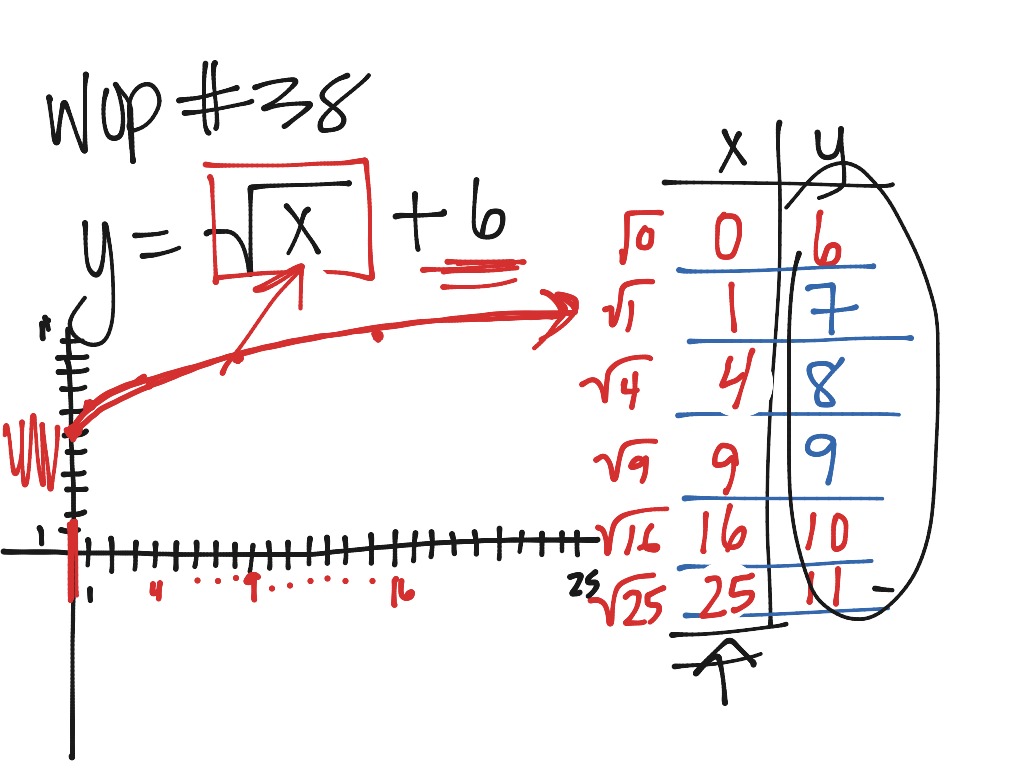 WOP #38
y = √x + 6
x y
√0 0 6
√1 1 7
√4 4 8
√9 9 9
√16 16 10
√25 25 11
1
1 4 9 16 25